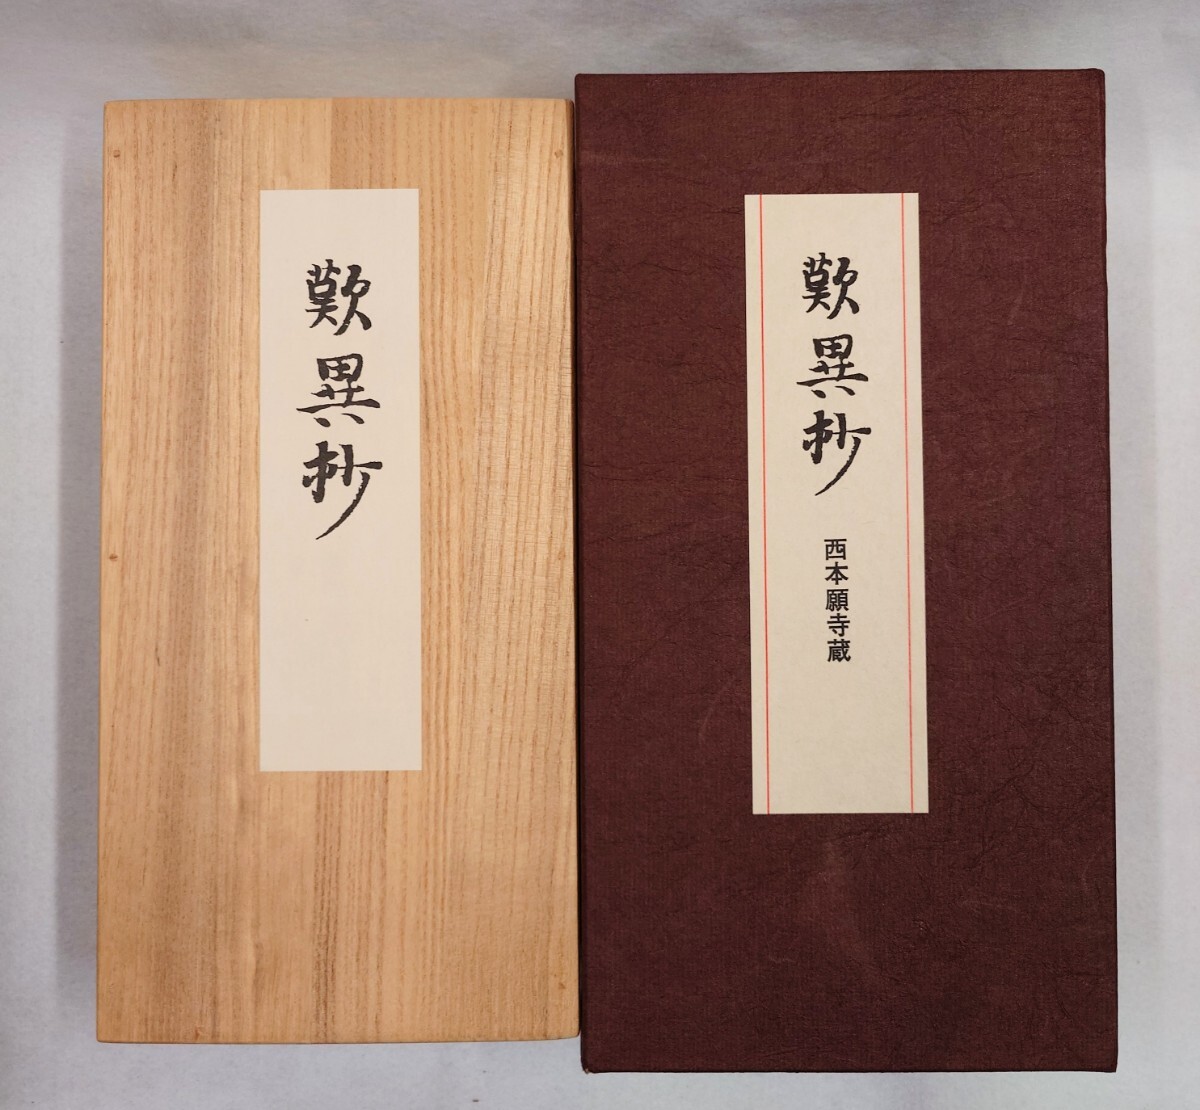 歎異抄
歎異抄
西本願寺蔵